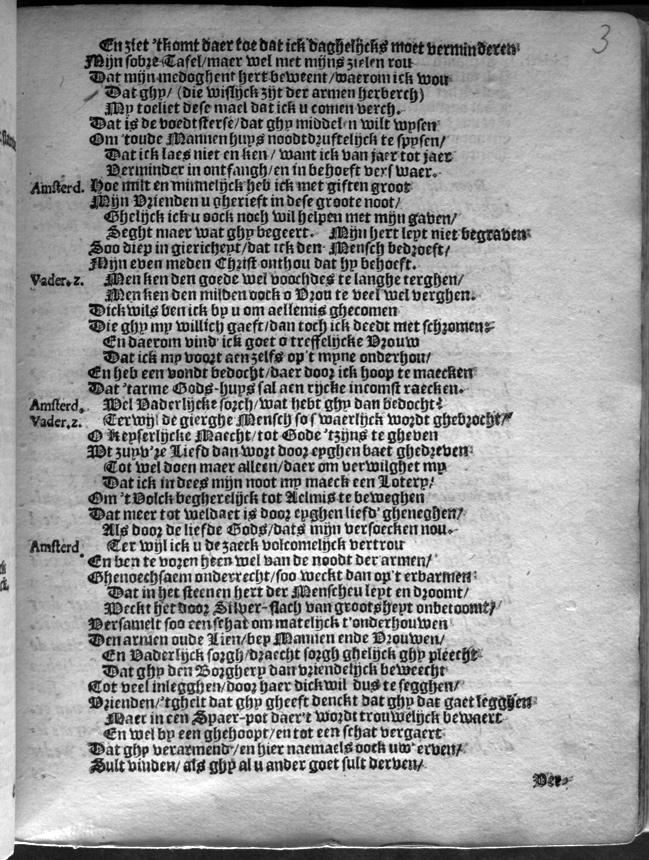 3
En ziet 'tkomt daer toe dat ick daghelijcks moet verminderen
Mijn sobre Tafel/maer wel met mijns zielen rou
Dat mijn medoghent hert beweent/waerom ick wou
Dat ghy/ (die wislijck zijt der armen herberch)
My toeliet dese mael dat ick u comen verch.
Dat is de voedtsterse/dat ghy middel n wilt wysen
Om 'toude Mannen huys noodtdruftelijck te spysen/
Dat ick laes niet en ken/ want ick van jaer tot jaer
Verminder in ontfangh/en in behoeft vers waer.
Amsterd. Hoe milt en minnelijck heb ick met giften groot
Mijn Vrienden u gherieft in dese groote noot/
Ghelijck ick u oock noch wil helpen met mijn gaven/
Seght maer wat ghy begeert. Mijn hert leyt niet begraven
Soo diep in giericheyt/dat ick den Mensch bedroeft/
Mijn even meden Christ onthou dat hy behoeft.
Vader. z. Men ken den goede wel voochdes te langhe terghen/
Men ken den milden oock o Vrou te veel wel verghen.
Dickwils ben ick by u om aellemis ghecomen
Die ghy my willich gaeft/dan toch ick deedt met schromen:
En daerom vind' ick goet o treffelijcke Vrouw
Dat ick my voort aen zelfs op't myne onderhou/
En heb een vondt bedocht/daer door ick hoop te maecken
Dat 'tarme Gods-huys sal aen rijcke incomst raecken.
Amsterd. Wel Vaderlijcke sorch/wat hebt ghy dan bedocht?
Vader. z. Terwijl de gierghe Mensch so's waerlijck wordt ghebrocht/
O Keyserlijcke Maecht/tot Gode 'tzijns te gheven
Wt zuyv're Liefd dan wort door eyghen baet ghedreven
Tot wel doen maer alleen/daer om verwilghet my
Dat ick in dees mijn noot my maeck een Lotery/
Om 't Volck begherelijck tot Aelmis te beweghen
Dat meer tot weldaet is door eyghen liefd' gheneghen/
Als door de liefde Gods/dats mijn versoecken nou.
Amsterd. Ter wijl ick u de zaeck volcomelijck vertrou
En ben te voren heen wel van de noodt der armen/
Ghenoechsaem onderrecht/soo weckt dan op't erbarmen
Dat in het steenen hert der Menscheu leyt en droomt/
Weckt het door Silver-slach van grootsheyt onbetoomt/
Versamelt soo een schat om matelijck t'onderhouwen
Den armen oude Lien/bey Mannen ende Vrouwen/
En Vaderlijck sorgh/draecht sorgh ghelijck ghy pleecht
Dat ghy den Borghery dan vriendelijck beweecht
Tot veel inlegghen/door haer dickwil dus te segghen/
Vrienden/'tghelt dat ghy gheeft denckt dat ghy dat gaet legghen
Maer in een Spaer-pot daer't wordt trouwelijck bewaert
En wel by een ghehoopt/en tot een schat vergaert
Dat ghy verarmend'/en hier naemaels oock uw' erven/
Sult vinden/ als ghy al u ander goet sult derven/
Der-